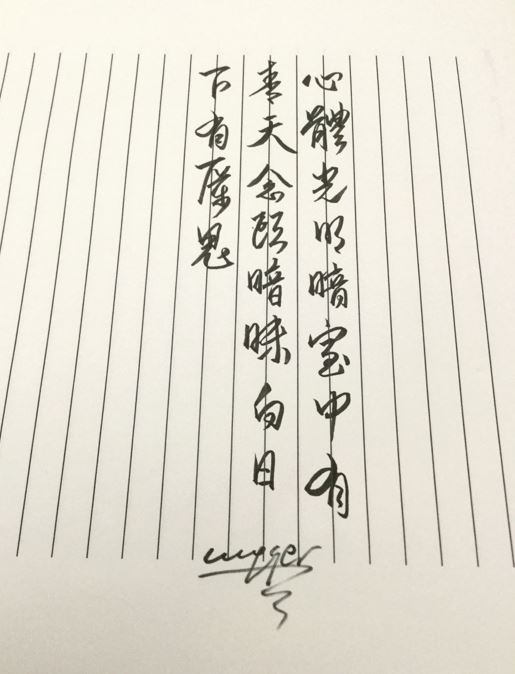 心體光明暗室中有
青天念頭暗昧白日
下有厲鬼